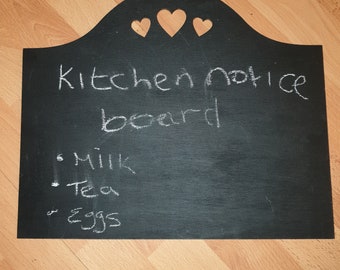 Kitchen notice
board
• Milk
• Tea
• Eggs